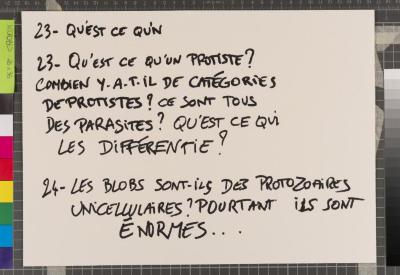 23- QU'EST CE QU'N
23- QU'EST CE QU'UN PROTISTE?
COMBIEN Y.A.T.IL DE CATÉGORIES
DE PROTISTES? CE SONT TOUS
DES PARASITES? QU'EST CE QUI
LES DIFFÉRENTIE?
24- LES BLOBS SONT-ILS DES PROTOZOAIRES
UNICELLULAIRES? POURTANT ILS SONT
ÉNORMES...